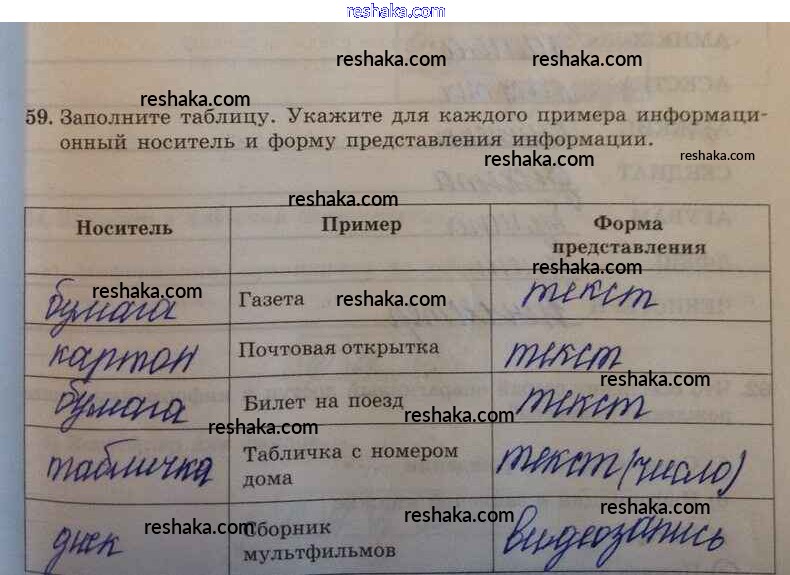 reshaka.com
reshaka.com reshaka.com
reshaka.com
59. Заполните таблицу. Укажите для каждого примера информаци-
онный носитель и форму представления информации.
reshaka.com reshaka.com
reshaka.com
Носитель Пример Форма
представления
reshaka.com
бумага reshaka.com Газета reshaka.com текст
картон Почтовая открытка текст
бумага Билет на поезд текст
reshaka.com reshaka.com
табличка Табличка с номером
дома текст (число)
reshaka.com
диск reshaka.com Сборник
мультфильмов reshaka.com видеозапись